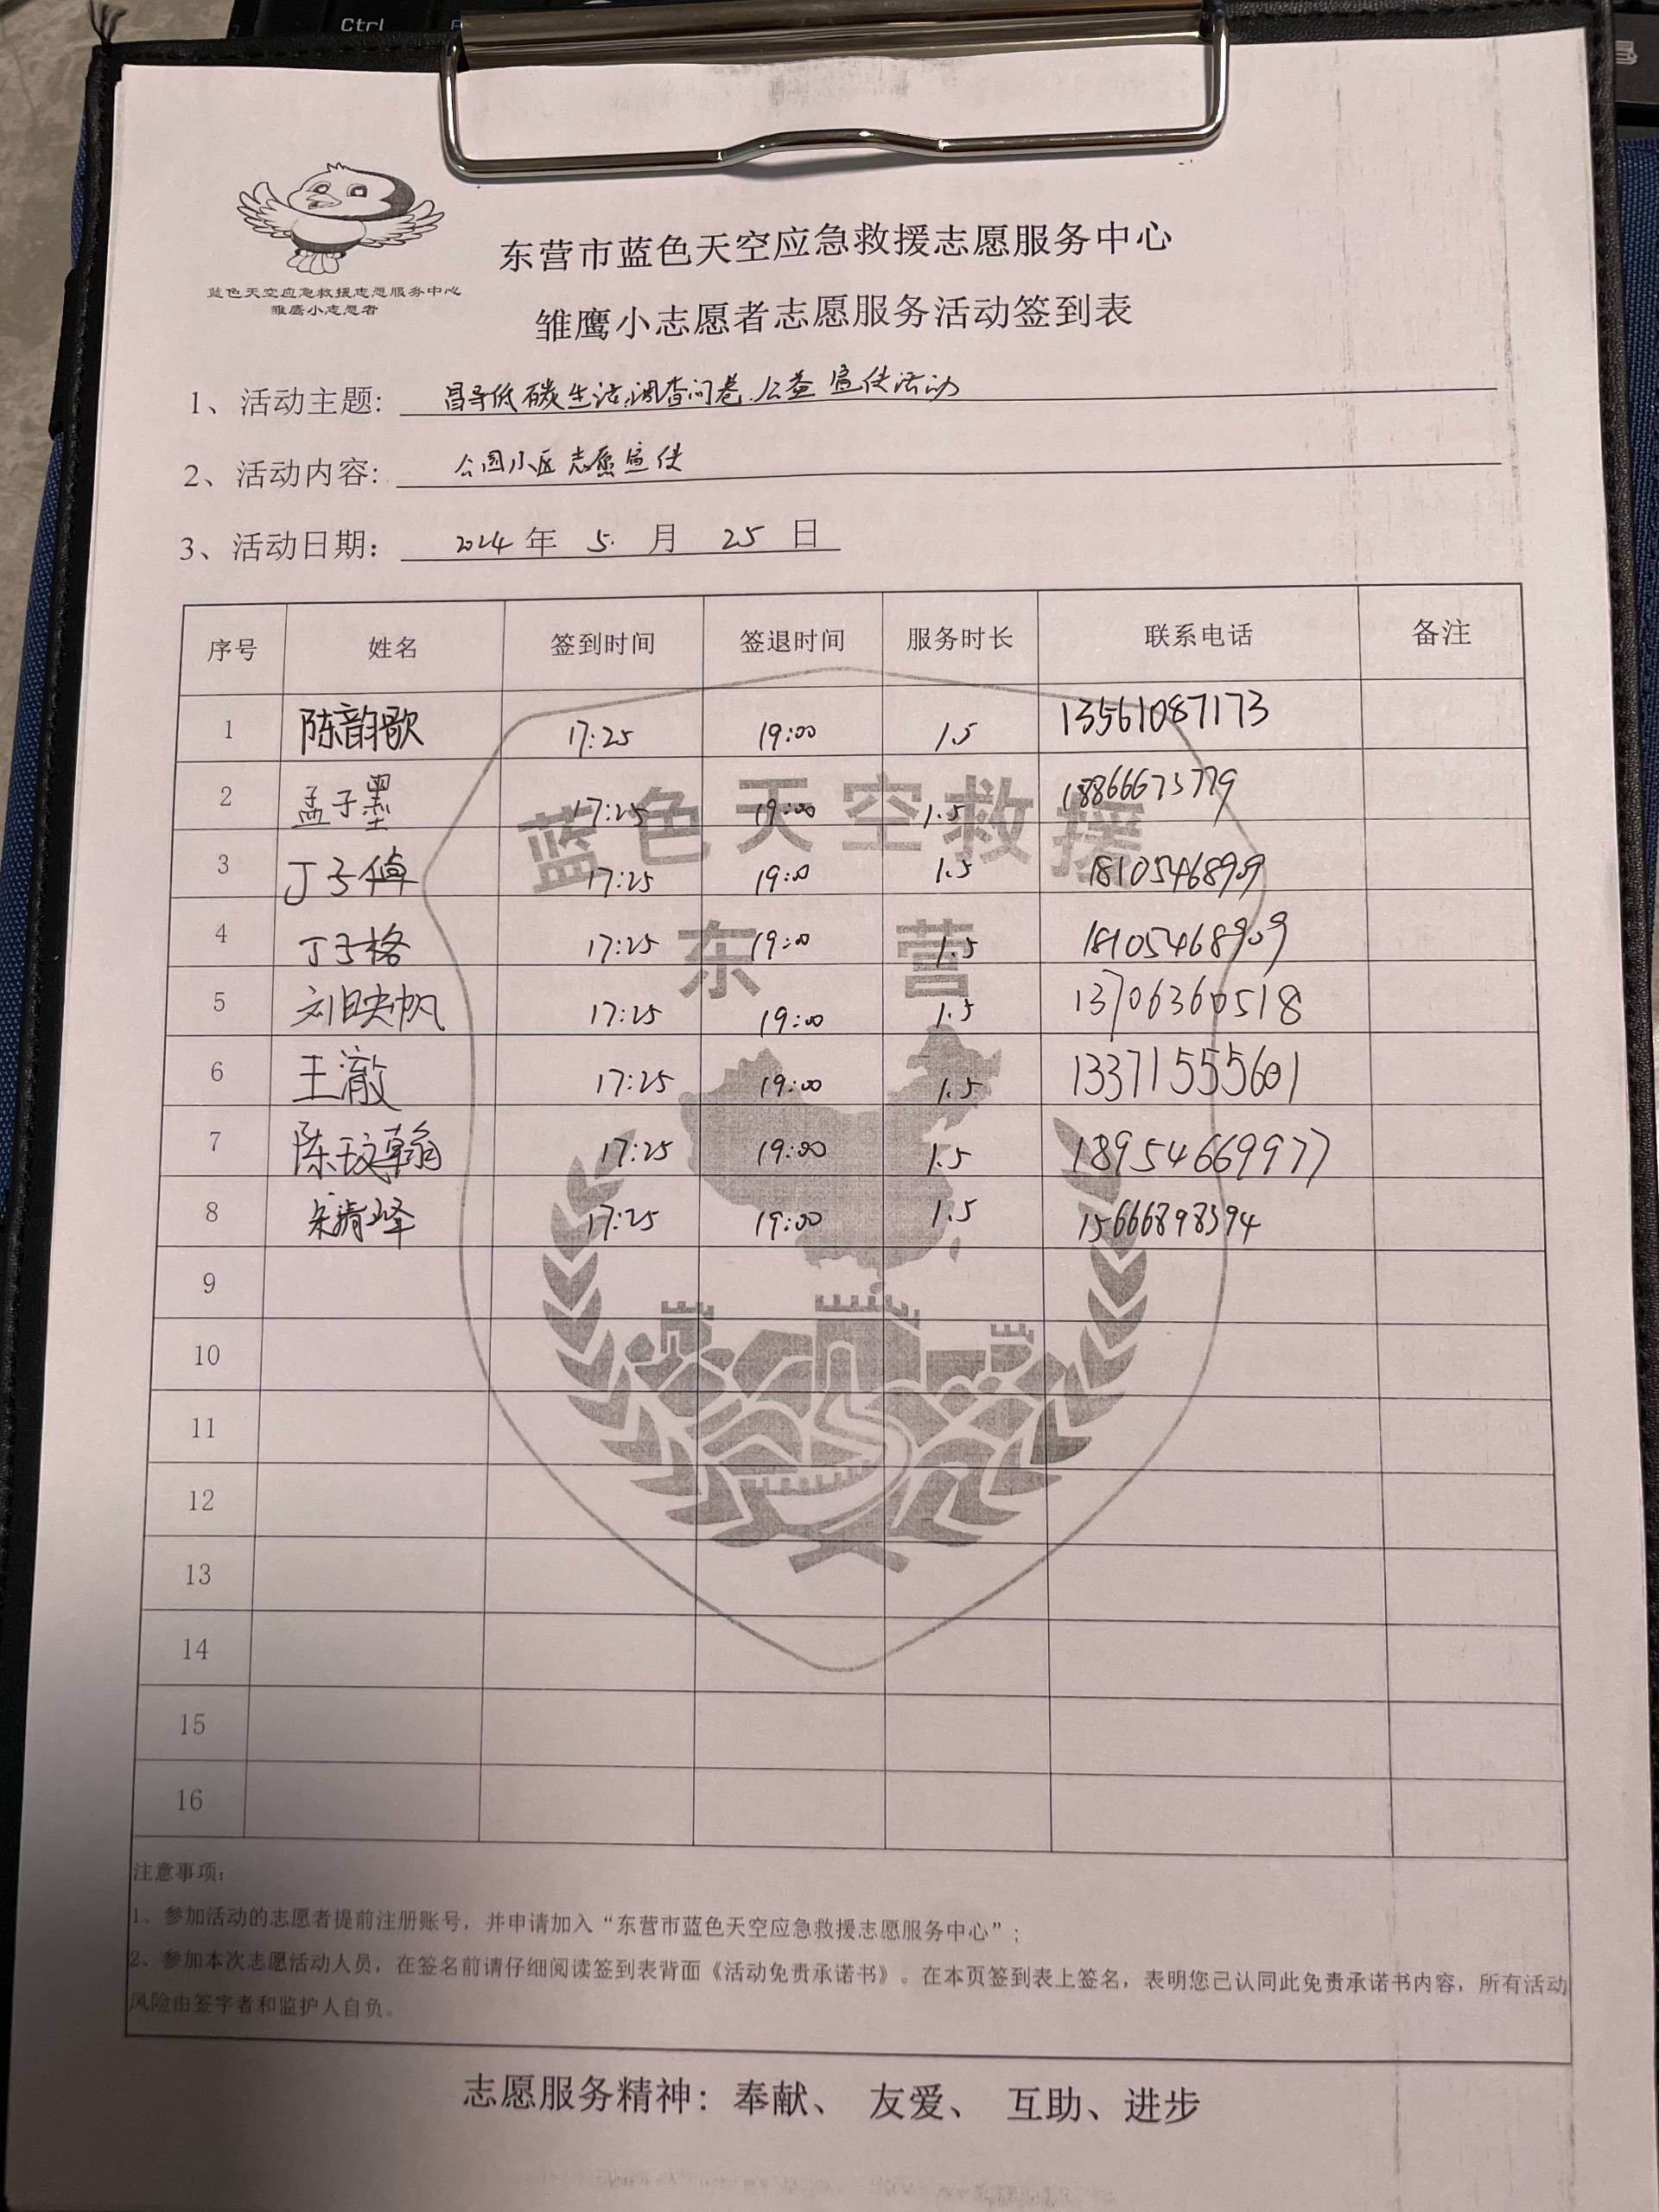 Ctrl
蓝色天空应急救援志愿服务中心
雏鹰小志愿者
东营市蓝色天空应急救援志愿服务中心
雏鹰小志愿者志愿服务活动签到表
1、活动主题: 昌导低碳生活,调查问卷.公益宣传活动
2、活动内容: 公园小区志愿宣传
3、活动日期: 2024年 5. 月 25 日
序号 姓名 签到时间 签退时间 服务时长 联系电话 备注
1 陈韵歌 17:25 19:00 1.5 13561087173
2 孟子墨 17:25 19:00 1.5 18866673779
3 丁子倬 17:25 19:00 1.5 18105468909
4 丁子格 17:25 19:00 1.5 18105468909
5 刘映帆 17:25 19:00 1.5 13706360518
6 王澈 17:25 19:00 1.5 13371555601
7 陈玟翰 17:25 19:00 1.5 18954669977
8 宋清峰 17:25 19:00 1.5 15666898394
9
10
11
12
13
14
15
16
蓝色天空救援
东营
注意事项:
1、参加活动的志愿者提前注册账号，并申请加入“东营市蓝色天空应急救援志愿服务中心”;
2、参加本次志愿活动人员，在签名前请仔细阅读签到表背面《活动免责承诺书》。在本页签到表上签名，表明您已认同此免责承诺书内容，所有活动
风险由签字者和监护人自负。
志愿服务精神：奉献、 友爱、 互助、进步